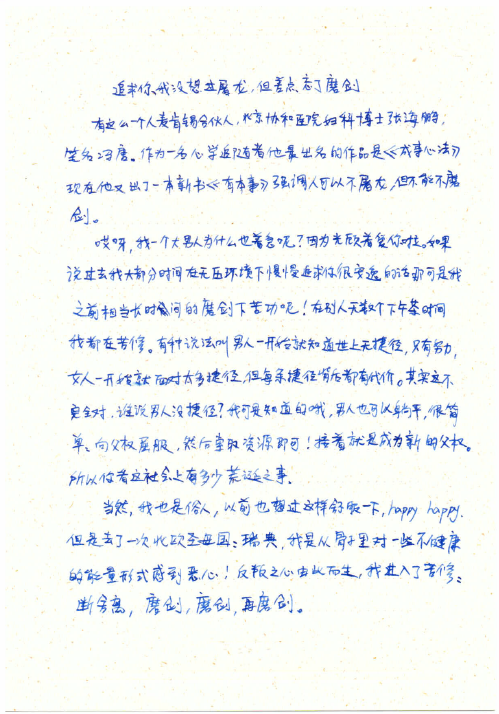 追求你、我没想去屠龙，但差点忘了磨剑
有这么一个人麦肯锡合伙人，北京协和医院妇科博士张海鹏，
笔名冯唐。作为一名心学追随者他最出名的作品是《成事心法》
现在他又出了一本新书《有本事》强调人可以不屠龙，但不能不磨
剑。
哎呀，我一个大男人为什么也着急呢？因为光顾着爱你啦。如果
说过去我大部分时间在无压环境下慢慢追求你很安逸的话那可是我
之前相当长时间的磨剑下苦功呢！在别人无数个下午茶时间
我都在苦修。有种说法叫男人一开始就知道世上无捷径，只有努力，
女人一开始就面对太多捷径，但每条捷径背后都有代价。其实这不
完全对，谁说男人没捷径？我可是知道的哦，男人也可以躺平，很简
单：向父权屈服，然后拿取资源即可！接着就是成为新的父权。
所以你看这社会上有多少荒诞之事。
当然，我也是俗人，以前也想过这样舒服一下，happy happy.
但是去了一次北欧圣母国：瑞典，我是从骨子里对一些不健康
的能量形式感到恶心！反叛之心由此而生，我进入了苦修：
断舍离，磨剑，磨剑，再磨剑。